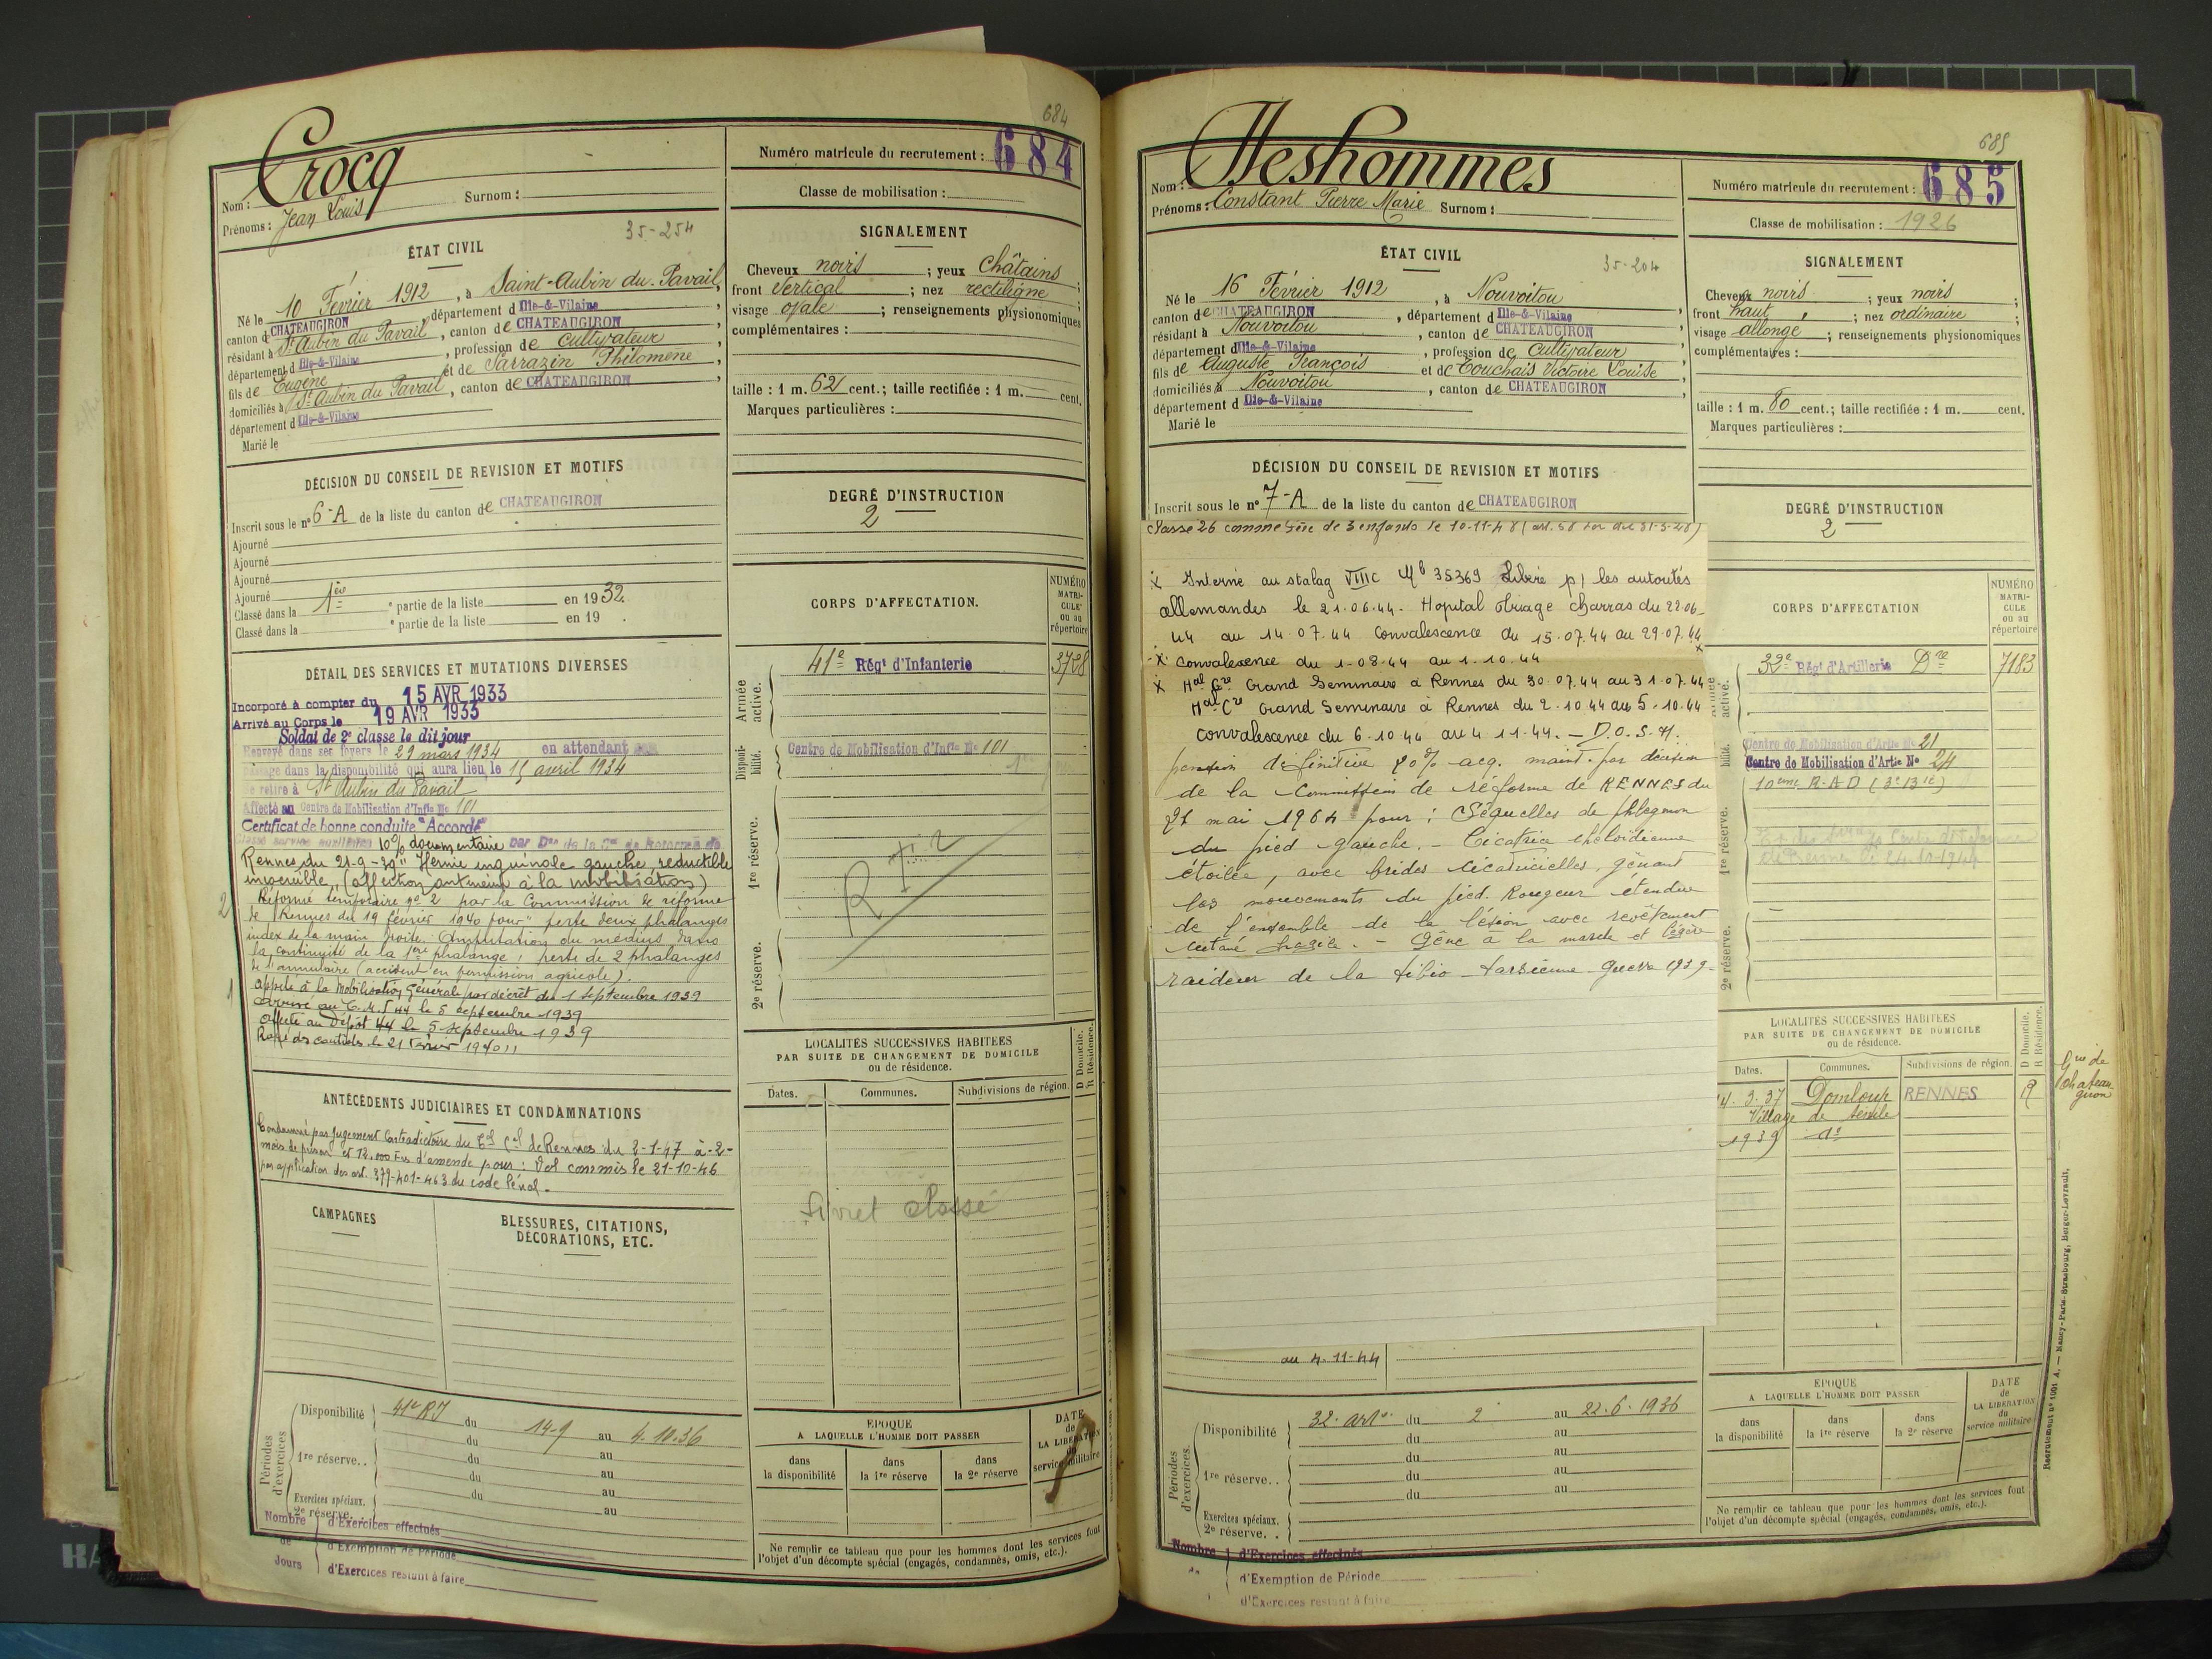 684
Crocq
Nom :
Prénoms : Jean Louis Surnom :
Numéro matricule du recrutement : 684
Classe de mobilisation :
35-254
ÉTAT CIVIL
Né le 10 Février 1912, à Saint-Aubin du Pavail,
canton de CHATEAUGIRON, département d Ille-&-Vilaine
résidant à St Aubin du Pavail, canton de CHATEAUGIRON,
département d Ille-&-Vilaine, profession de Cultivateur,
fils de Eugène et de Sarrazin Philomène,
domiciliés à St Aubin du Pavail, canton de CHATEAUGIRON,
département d Ille-&-Vilaine
Marié le
SIGNALEMENT
Cheveux noirs ; yeux Châtains ;
front Vertical ; nez rectiligne ;
visage ovale ; renseignements physionomiques
complémentaires :
taille : 1 m. 62 cent.; taille rectifiée : 1 m. cent.
Marques particulières :
DÉCISION DU CONSEIL DE REVISION ET MOTIFS
Inscrit sous le n° 6-A de la liste du canton de CHATEAUGIRON
Ajourné
Ajourné
Ajourné
Ajourné
Classé dans la 1ère partie de la liste en 1932.
Classé dans la e partie de la liste en 19 .
DEGRÉ D'INSTRUCTION
2
DÉTAIL DES SERVICES ET MUTATIONS DIVERSES
Incorporé à compter du 15 AVR 1933
Arrivé au Corps le 19 AVR 1933
Soldat de 2e classe le dit jour
Renvoyé dans ses foyers le 29 mars 1934 en attendant son
passage dans la disponibilité qui aura lieu le 15 avril 1934
Se retire à St Aubin du Pavail
Affecté au Centre de Mobilisation d'Inf^ie No 101
Certificat de bonne conduite "Accordé"
Classé service auxiliaire 10% documentaire par D^on de la C^on de Réforme de
Rennes du 21-9-39 "Hernie inguinale gauche réductible
(affection antérieure à la mobilisation)
2 Réformé temporaire n° 2 par la Commission de réforme
de Rennes du 19 février 1940 pour "perte deux phalanges
index de la main droite. Amputation du médius dans
la continuité de la 1ère phalange ; perte de 2 phalanges
de l'annulaire (accident en permission agricole).
1 Appelé à la Mobilisation Générale par décret du 1 Septembre 1939
arrivé au C.M.I 44 le 5 septembre 1939
Affecté au Dépôt 44 le 5 septembre 1939
Rayé des contrôles le 21 Février 1940
CORPS D'AFFECTATION.
NUMÉRO MATRICULE ou au répertoire
Armée active.
41e Régt d'Infanterie 3728
Disponibilité.
Centre de Mobilisation d'Inf^ie No 101
1re réserve.
R T. 2
2e réserve.
ANTÉCÉDENTS JUDICIAIRES ET CONDAMNATIONS
Condamné par Jugement Contradictoire du T^al C^el de Rennes du 2-1-47 à -2-
mois de prison et 12.000 Frs d'amende pour : Vol commis le 21-10-46
par application des art. 379-401-463 du code Pénal -
CAMPAGNES
BLESSURES, CITATIONS,
DÉCORATIONS, ETC.
LOCALITÉS SUCCESSIVES HABITÉES
PAR SUITE DE CHANGEMENT DE DOMICILE
ou de résidence.
D Domicile.
R Résidence.
Dates. Communes. Subdivisions de région.
Livret classé
Périodes d'exercices
Disponibilité 41e RI du 14-9 au 4.10.36
du au
1re réserve.. du au
du au
du au
Exercices spéciaux.
2e réserve. au
Nombre de Jours
d'Exercices effectués
d'Exemption de Période
d'Exercices restant à faire
ÉPOQUE
A LAQUELLE L'HOMME DOIT PASSER
dans la disponibilité
dans la 1re réserve
dans la 2e réserve
DATE de LA LIBÉRATION du service militaire
Ne remplir ce tableau que pour les hommes dont les services font
l'objet d'un décompte spécial (engagés, condamnés, omis, etc.).
685
Deshommes
Nom :
Prénoms : Constant Pierre Marie Surnom :
Numéro matricule du recrutement : 685
Classe de mobilisation : 1926
35-204
ÉTAT CIVIL
Né le 16 Février 1912, à Nouvoitou
canton de CHATEAUGIRON, département d Ille-&-Vilaine,
résidant à Nouvoitou, canton de CHATEAUGIRON,
département d Ille-&-Vilaine, profession de Cultivateur,
fils de Auguste François et de Touchais Victoire Louise,
domiciliés à Nouvoitou, canton de CHATEAUGIRON,
département d Ille-&-Vilaine
Marié le
SIGNALEMENT
Cheveux noirs ; yeux noirs ;
front haut ; nez ordinaire ;
visage allongé ; renseignements physionomiques
complémentaires :
taille : 1 m. 80 cent.; taille rectifiée : 1 m. cent.
Marques particulières :
DÉCISION DU CONSEIL DE REVISION ET MOTIFS
Inscrit sous le n° 7-A de la liste du canton de CHATEAUGIRON
DEGRÉ D'INSTRUCTION
2
Classe 26 comme Père de 3 enfants le 10-11-48 (art. 58 Loi du 31-3-28)
x Interné au stalag VIIIC Mle 35369 Libéré p/ les autorités
allemandes le 21.06.44. Hopital triage Charras du 22.06-
44 au 14.07.44 Convalescence du 15.07.44 au 29.07.44
x Convalescence du 1-08-44 au 1.10.44
x Hal Cre Grand Seminaire à Rennes du 30.07.44 au 31.07.44
Hal Cre Grand Seminaire à Rennes du 2.10.44 au 5.10.44
Convalescence du 6.10.44 au 4.11.44. - D.O.S.A.
pension définitive 20% acq. maint. par décision
de la Commission de réforme de RENNES du
21 mai 1964 pour : Séquelles de phlegmon
du pied gauche. - Cicatrice chéloïdienne
étoilée, avec brides cicatricielles, gênant
les mouvements du pied. Rougeur étendue
de l'ensemble de la lésion avec revêtement
cutané fragile. - Gêne à la marche et légère
raideur de la tibio-tarsienne. Guerre 1939-
au 4-11-44
CORPS D'AFFECTATION
NUMÉRO MATRICULE ou au répertoire
Armée active.
32e Régt d'Artillerie D^re 7183
Centre de Mobilisation d'Art^ie No 21
Centre de Mobilisation d'Art^ie No 24
10ème R.A.D (3e 13 ie)
1re réserve.
2e réserve.
LOCALITÉS SUCCESSIVES HABITÉES
PAR SUITE DE CHANGEMENT DE DOMICILE
ou de résidence.
D Domicile.
R Résidence.
Dates. Communes. Subdivisions de région.
4.3.37 Domloup RENNES R
Village de
1939 d°
G^rie de Chateaugiron
Périodes d'exercices.
Disponibilité 32e art^ie du 2 au 22.6.1936
du au
du au
1re réserve.. du au
du au
Exercices spéciaux.
2e réserve. .
Nombre
d'Exercices effectués
d'Exemption de Période
d'Exercices restant à faire
ÉPOQUE
A LAQUELLE L'HOMME DOIT PASSER
dans la disponibilité
dans la 1re réserve
dans la 2e réserve
DATE de LA LIBÉRATION du service militaire
Ne remplir ce tableau que pour les hommes dont les services font
l'objet d'un décompte spécial (engagés, condamnés, omis, etc.).
Recrutement n° 1001 A. — Nancy-Paris-Strasbourg, Berger-Levrault.